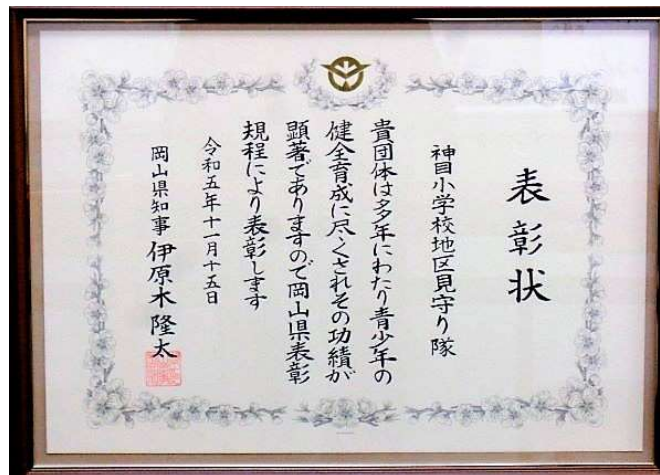 表彰状
神目小学校地区見守り隊
貴団体は多年にわたり青少年の
健全育成に尽くされその功績が
顕著でありますので岡山県表彰
規程により表彰します
令和五年十一月十五日
岡山県知事 伊原木隆太